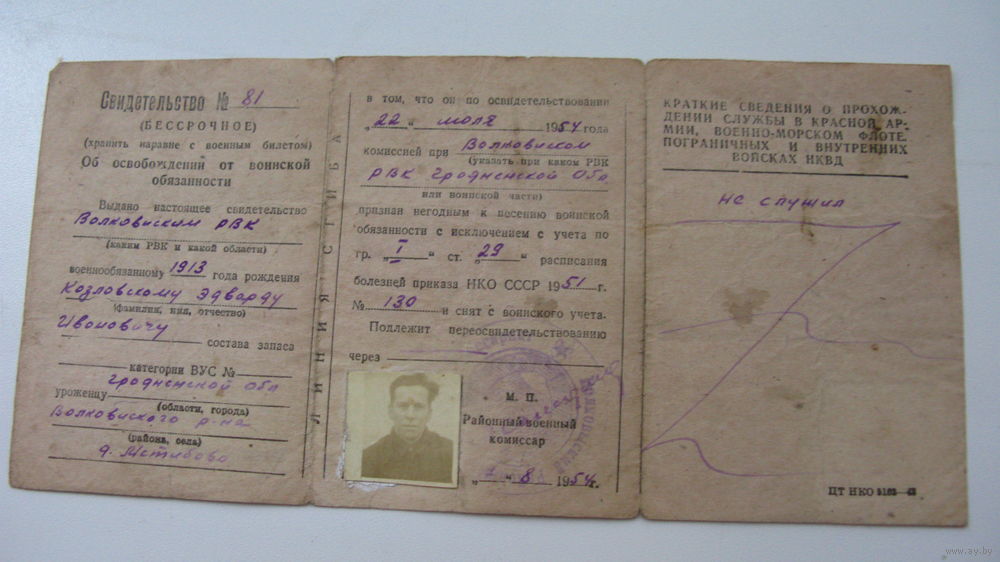 Свидетельство № 81
(БЕССРОЧНОЕ)
(хранить наравне с военным билетом)
Об освобождении от воинской
обязанности
Выдано настоящее свидетельство
Волковиским РВК
(каким РВК и какой области)
военнообязанному 1913 года рождения
Козловскому Эдварду
(фамилия, имя, отчество)
Ивановичу состава запаса
категории ВУС №
Гродненской Обл
уроженцу
(области, города)
Волковиского р-на
(района, села)
д. Мстибово
ЛИНИЯ СГИБА
в том, что он по освидетельствовании
„22“ июля 1954 года
комиссией при Волковиском
(указать при каком РВК
РВК Гродненской Обл
или воинской части)
признан негодным к несению воинской
обязанности с исключением с учета по
гр. „I“ ст. „29“ расписания
болезней приказа НКО СССР 1951 г.
№ 130 и снят с воинского учета.
Подлежит переосвидетельствованию
через
М. П.
Районный военный
комиссар
„7“ 8 1954 г.
КРАТКИЕ СВЕДЕНИЯ О ПРОХОЖ-
ДЕНИИ СЛУЖБЫ В КРАСНОЙ АР-
МИИ, ВОЕННО-МОРСКОМ ФЛОТЕ,
ПОГРАНИЧНЫХ И ВНУТРЕННИХ
ВОЙСКАХ НКВД
не служил
ЦТ НКО
www.ay.by